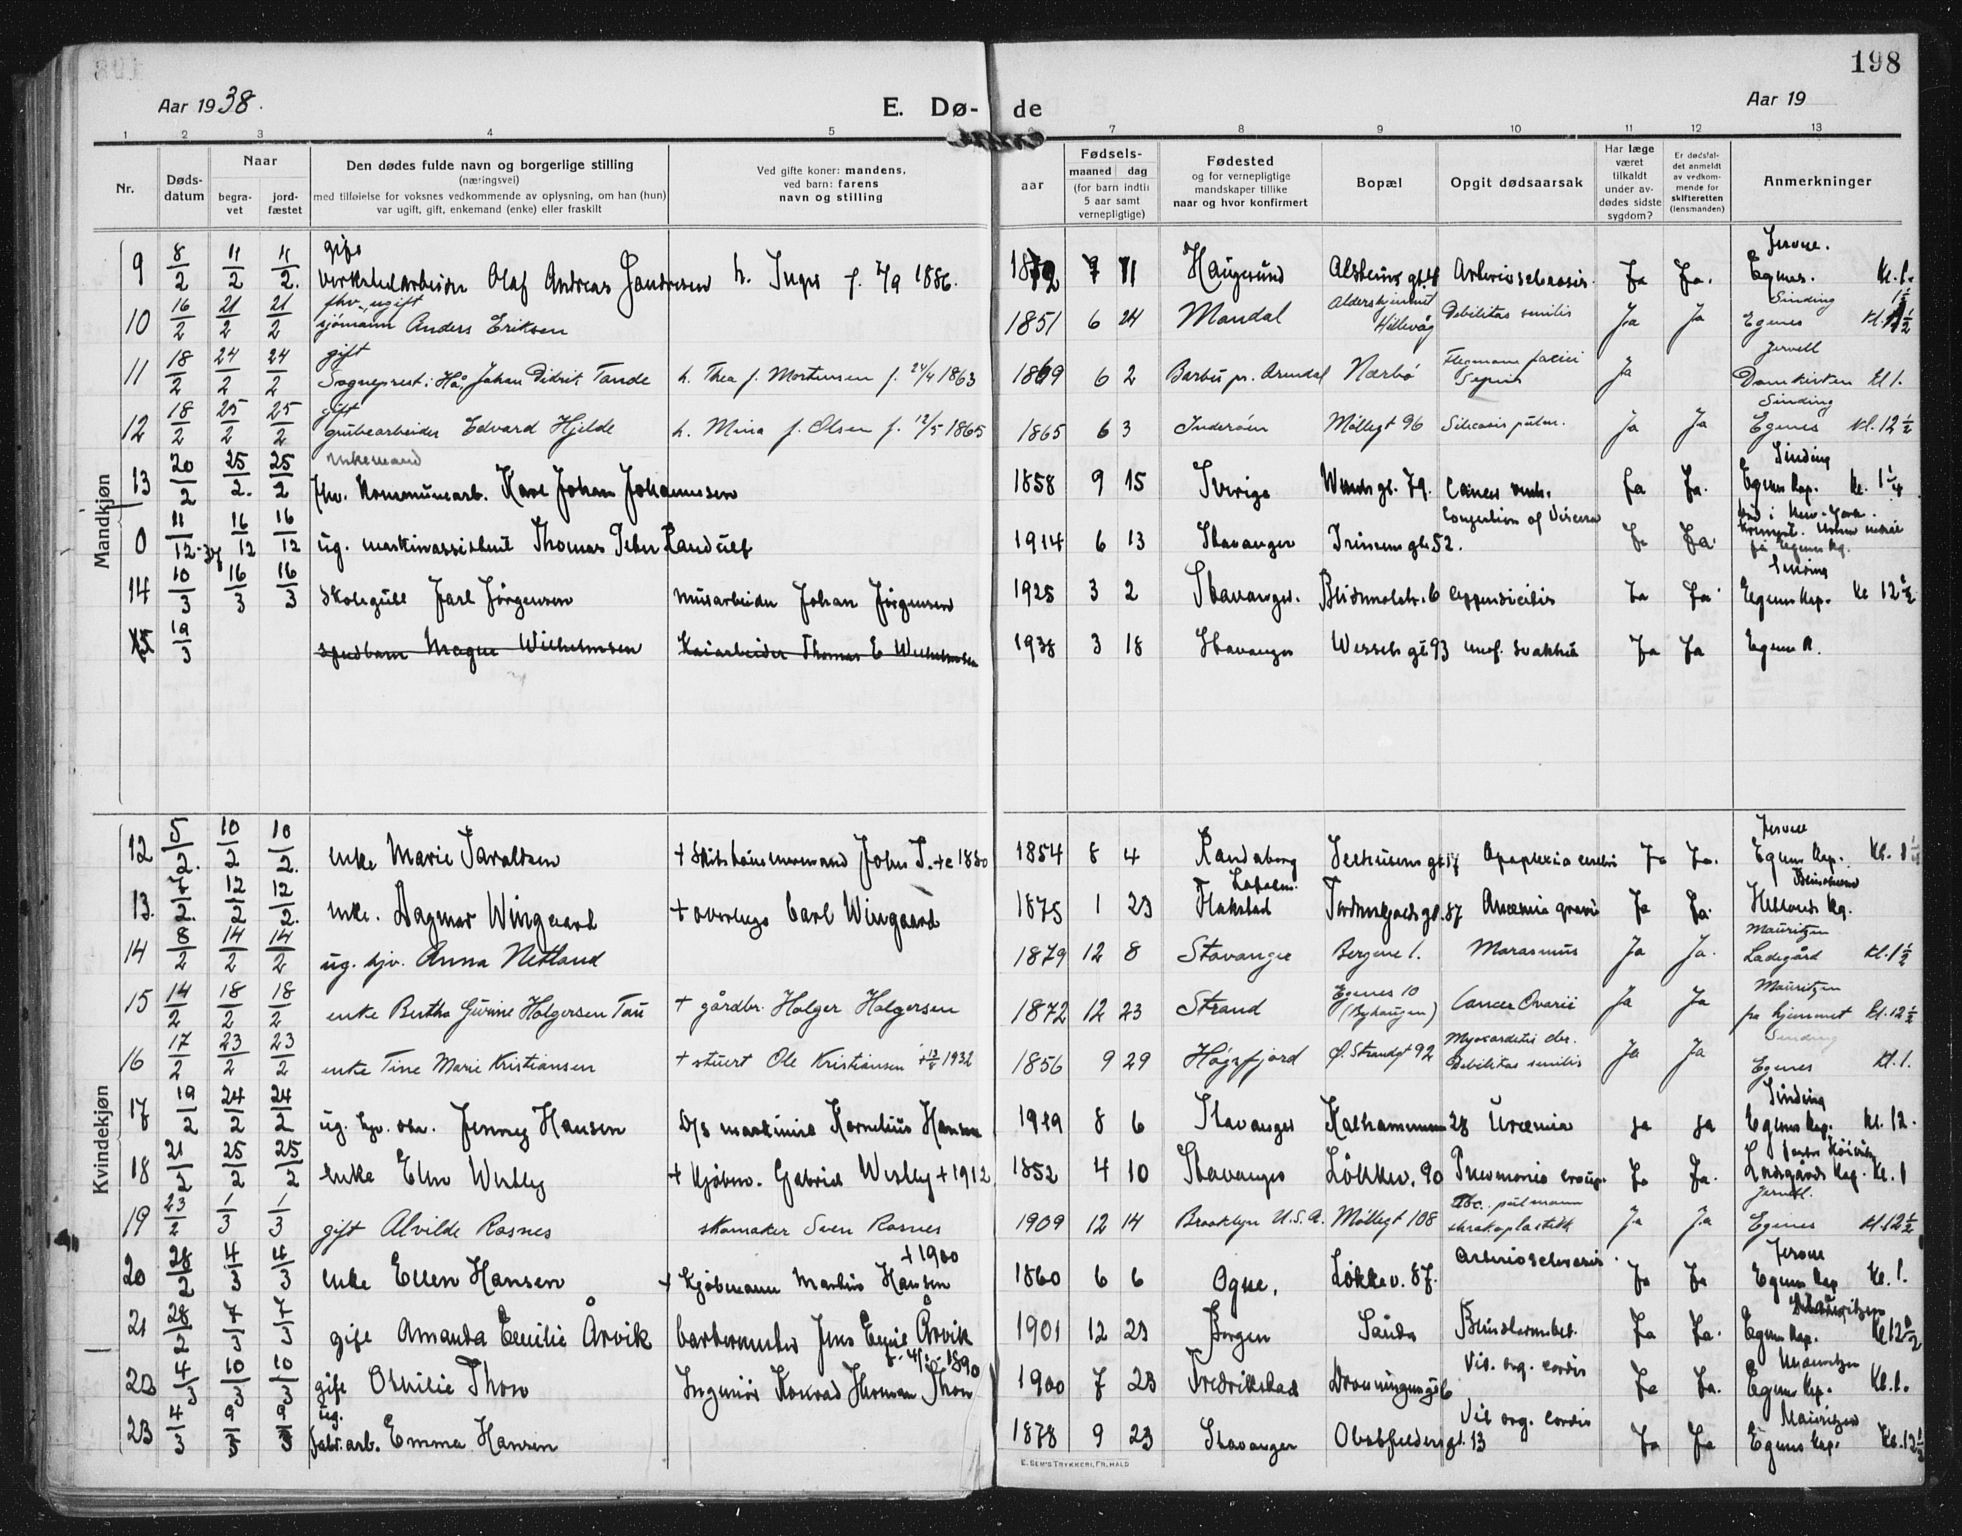 198
Aar 1938.
E. Dø- de
Aar 19
1 2 3 4 5 7 8 9 10 11 12 13
Nr.
Døds-datum
Naar
begra-vet
jord-fæstet
Den dødes fulde navn og borgerlige stilling
(næringsvei)
med tilføielse for voksnes vedkommende av oplysning, om han (hun)
var ugift, gift, enkemand (enke) eller fraskilt
Ved gifte koner: mandens,
ved barn: farens
navn og stilling
aar
Fødsels-
maaned dag
(for barn indtil 5 aar samt vernepligtige)
Fødested
og for vernepligtige
mandskaper tillike
naar og hvor konfirmert
Bopæl
Opgit dødsaarsak
Har læge været tilkaldt under av-dødes sidste sygdom?
Er dødsfal-det anmeldt av vedkom-mende for skifteretten (lensmanden)
Anmerkninger
Mandkjøn
9 8/2 11/2 11/2. gift Olaf Andreas h. Inga f. 1886. 7 11 Haugesund Ja Ja. Egenes. Kl. 1.
10 16/2 21/2 21/2 fhv. ugift sjömann Anders Eriksen 1851 6 24 Mandal Aldershjemmet Hillevåg Debilitas senilis Ja Ja Sinding Egenes
11 18/2 24/2 24/2 gift Sogneprest i Hå, Johan Didrik Tande h. Thea f. Mortensen f. 24/4 1863 1869 6 2 Barbu pr. Arendal Nærbø Ja Jervell Domkirken Kl 1.
12 18/2 25/2 25/2 gift grubearbeider Edvard Hjelde h. Mina f. Olsen f. 12/5 1865 1865 6 3 Inderöen Möllegt 96 Silicosis pulm. Ja Ja Sinding Egenes Kl. 12 1/2
13 20/2 25/2. 25/2 enkemand fhv. Kommunearb. Karl Johan Johannesen 1858 9 15 Sverige 79. Cancer Ja Ja. Sinding Egenes Kap. Kl. 1 1/4
0 11/12-37 16/12 16/12 ug. maskinassistent Thomas Peter Randulf 1914 6 13 Stavanger 52. Congestion of Viscera Ja Ja. Død i New-York.
14 10/3 16/3 16/3 skolegutt Jarl Jørgensen murarbeider Johan Jørgensen 1925 3 2 Stavanger. Appendicitis Ja Ja Sinding Egenes Kap. Kl 12 1/2
15 19/3 spedbarn Magne Wilhelmsen Kaiarbeider Thomas E Wilhelmsen 1938 3 18 Stavanger Wessels gt 93 svakhet Ja Ja Egenes K.
Kvindekjøn
12 5/2. 10/2 10/2. enke Marie Taraldsen + John T. 1854 8 4 Randaberg Apoplexia cerebri Ja Ja. Egenes Kap.
13. 7/2. 12/2 12/2. enke. Dagmar Wingaard + overlege Carl Wingaard 1875 1 23 Flakstad Lofoten. 87 Anæmia gravis Ja Ja.
14 8/2 14/2 14/2 ug. hjv. Anna Netland 1879 12 8 Stavanger Bergene 1. Marasmus Ja Ja. Mauritzen Ladegård Kl. 1 1/2
15 14/2 18/2 18/2 enke Bertha Gurine Holgersen Tau + gårdbr. Holger Holgersen 1872 12 23 Strand Egenes 10 (Byhaugen) Cancer Ovarii Ja Ja Mauritzen fra hjemmet Kl. 12 1/2
16 17/2 23/2 23/2 enke Tine Marie Kristiansen + stuert Ole Kristiansen 1932 1856 9 29 Høgsfjord Ø. Strandgt 92 Debilitas senilis Ja Ja Sinding Egenes Kl. 1.
17 19/2 24/2 24/2 ug. Jenny Hansen D/s maskinist Kornelius Hansen 8 6 Stavanger 28 Uræmia Ja Ja Sinding Egenes Kap. Kl. 12.
18 21/2 25/2 25/2 enke Elen Westby + Kjøbm. Gabriel Westby + 1912 1852 4 10 Stavanger Løkkev. 90 Pneumonia croup. Ja Ja. Ladegårds Kap. Kl. 1
19 23/2 1/3 1/3 gift Alvilde Rosnes skomaker Sven Rosnes 1909 12 14 Brooklyn U.S.A. Möllegt 108 Tbc. pulmonum thorakoplastikk Ja Ja Jervell. Egenes Kl. 12 1/2
20 28/2 4/3 4/3 enke Ellen Hansen + Kjøbmann Martius Hansen + 1900 1860 6 6 Ogne. Løkkev. 87. Arteriosclerosis Ja Ja Egenes Kap Kl. 1.
21 28/2 4/3 4/3 gift Amanda Cecilie Årvik barbermester Jens Årvik 1901 12 23 Bergen Sauda Ja Ja. Mauritzen Egenes Kap. Kl 12 1/2
22 4/3 10/3 10/3 gift Othilie Thon Ingeniør Konrad Herman Thon 1890 1900 7 23 Fredrikstad Vit. org. cordis Ja Ja. Mauritzen Egenes Kap. Kl. 1.
23 4/3 9/3 9/3 ug. fabr.arb. Emma Hansen 1878 9 23 Stavanger Obstfeldersgt. 13 Vit org. cordis Ja Ja Mauritzen Egenes Kap. Kl. 12 1/2
E. SEM'S TRYKKERI, FR. HALD